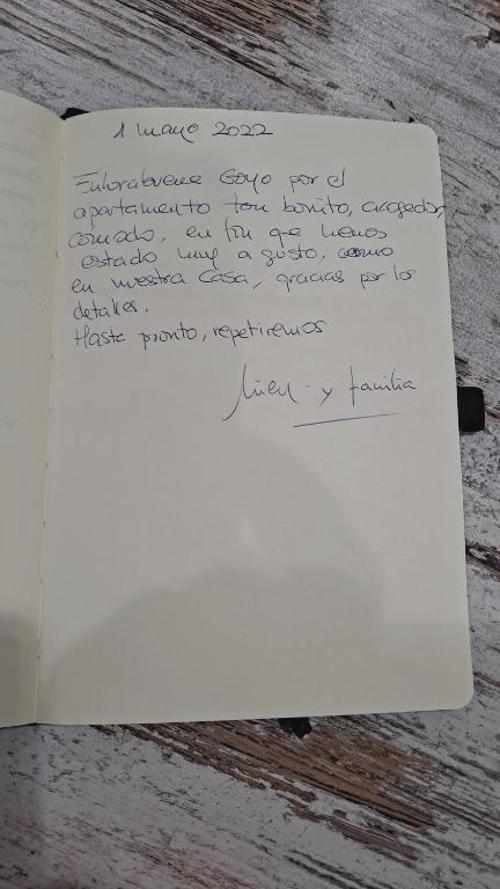 1 mayo 2022
Enhorabuena Goyo por el
apartamento tan bonito, acogedor,
comodo, en fin que hemos
estado muy a gusto, como
en nuestra casa, gracias por los
detalles.
Hasta pronto, repetiremos
y familia